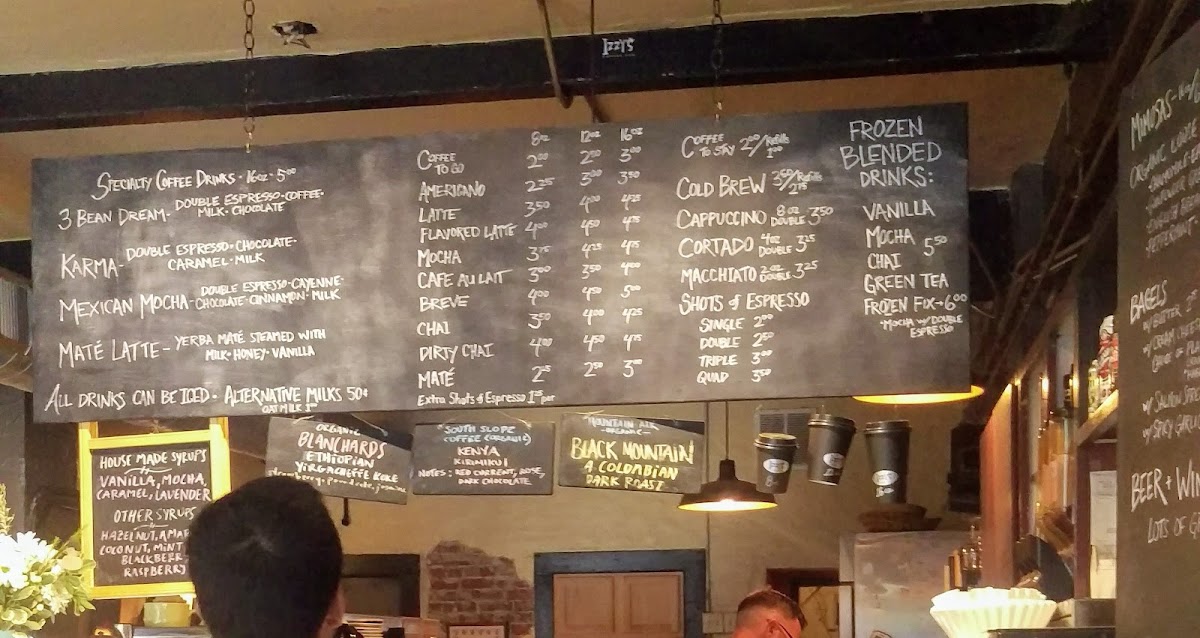 IZZY'S
SPECIALTY COFFEE DRINKS · 16oz · 5.00
3 BEAN DREAM - DOUBLE ESPRESSO · COFFEE ·
MILK · CHOCOLATE
KARMA - DOUBLE ESPRESSO · CHOCOLATE ·
CARAMEL · MILK
MEXICAN MOCHA - DOUBLE ESPRESSO · CAYENNE ·
CHOCOLATE · CINNAMON · MILK
MATÉ LATTE - YERBA MATÉ STEAMED WITH
MILK · HONEY · VANILLA
ALL DRINKS CAN BE ICED · ALTERNATIVE MILKS 50¢
OAT MILK 1.00
8oz 12oz 16oz
COFFEE TO GO 2.00 2.50 3.00
AMERICANO 2.25 3.00 3.50
LATTE 3.50 4.00 4.25
FLAVORED LATTE 4.00 4.50 4.75
MOCHA 3.75 4.25 4.75
CAFE AU LAIT 3.00 3.50 4.00
BREVE 4.00 4.50 5.00
CHAI 3.50 4.00 4.25
DIRTY CHAI 4.00 4.50 4.75
MATÉ 2.25 2.50 3.00
Extra Shots of Espresso 1.25 per
COFFEE TO STAY 2.00/Refills 1.00
COLD BREW
CAPPUCCINO 8oz DOUBLE 3.50
CORTADO 4oz DOUBLE 3.25
MACCHIATO 2oz DOUBLE 3.25
SHOTS of ESPRESSO
SINGLE 2.00
DOUBLE 2.50
TRIPLE 3.00
QUAD 3.50
FROZEN
BLENDED
DRINKS:
VANILLA
MOCHA 5.50
CHAI
GREEN TEA
FROZEN FIX → 6.00
*MOCHA w/ DOUBLE
ESPRESSO
HOUSE MADE SYRUPS
VANILLA, MOCHA,
CARAMEL, LAVENDER
OTHER SYRUPS
HAZELNUT,
COCONUT, MINT
BLACKBERRY
RASPBERRY
ORGANIC
BLANCHARDS
ETHIOPIAN
YIRGACHEFFE KOKE
"SOUTH SLOPE
COFFEE (ORGANIC)
KENYA
KIRIMIKUI
NOTES: RED CURRENT, ROSE,
DARK CHOCOLATE
"MOUNTAIN AIR
ORGANIC"
BLACK MOUNTAIN
A COLOMBIAN
DARK ROAST
MIMOSAS -
ORGANIC
BAGELS
w/ BUTTER
w/ CREAM
w/ SALMON
w/ SPICY
BEER + WIN
LOTS OF